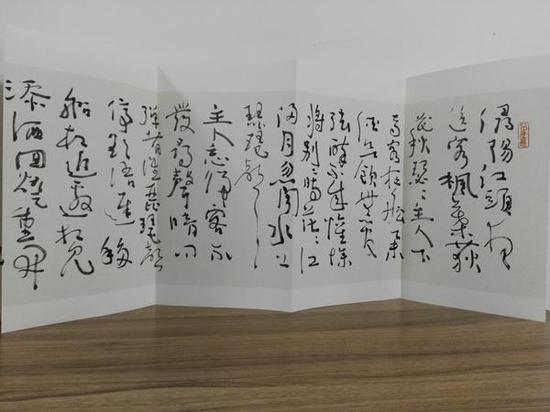 潯陽江頭夜
送客楓葉荻
花秋瑟〻主人下
馬客在船舉
酒欲飲無管
弦醉不成歡慘
將別〻時茫〻江
浸月忽聞水上
琵琶聲
主人忘歸客不
發尋聲暗問
彈者誰琵琶聲
停欲語遲移
船相近邀相見
添酒回燈重開